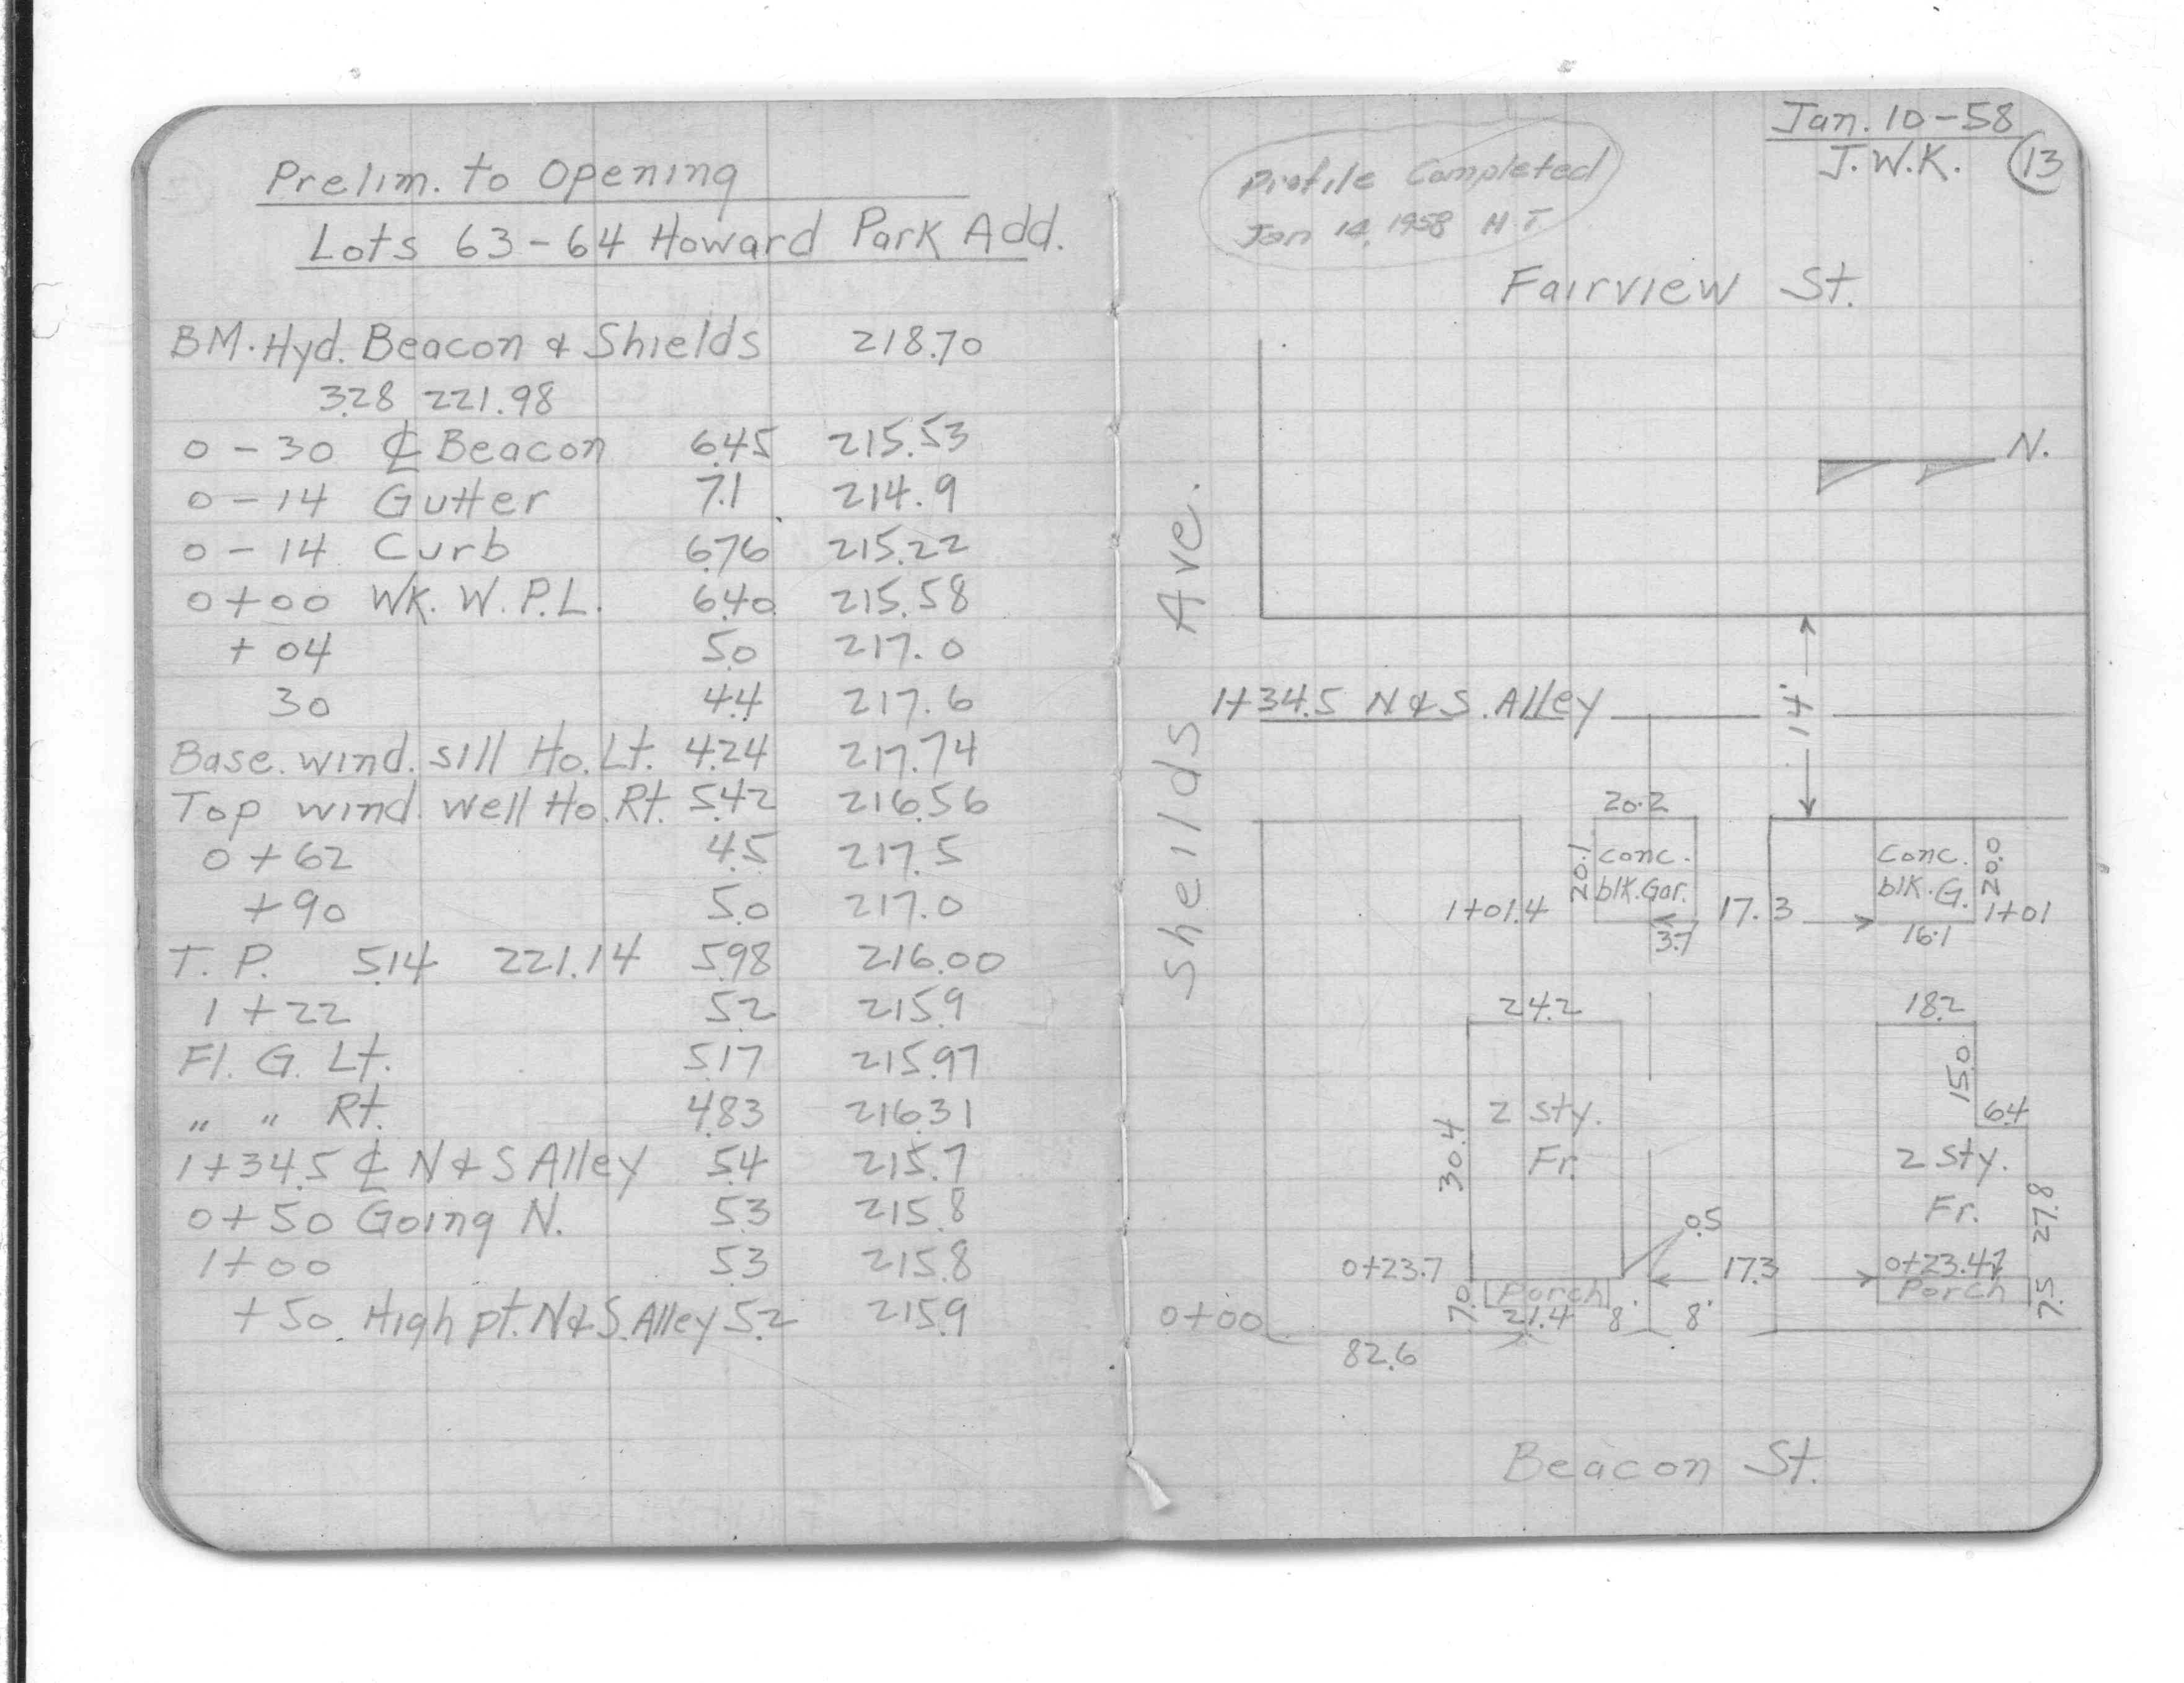 Prelim. to Opening
Lots 63-64 Howard Park Add.
BM. Hyd. Beacon & Shields 218.70
3.28 221.98
0-30 ℄ Beacon 6.45 215.53
0-14 Gutter 7.1 214.9
0-14 Curb 6.76 215.22
0+00 Wk. W.P.L. 6.40 215.58
+04 5.0 217.0
30 4.4 217.6
Base. wind. sill Ho. Lt. 4.24 217.74
Top wind. well Ho. Rt. 5.42 216.56
0+62 4.5 217.5
+90 5.0 217.0
T.P. 5.14 221.14 5.98 216.00
1+22 5.2 215.9
Fl. G. Lt. 5.17 215.97
" " Rt. 4.83 216.31
1+34.5 ℄ N & S Alley 5.4 215.7
0+50 Going N. 5.3 215.8
1+00 5.3 215.8
+50 High pt. N & S. Alley 5.2 215.9
Jan. 10-58
J.W.K. 13
Profile Completed
Jan 14, 1958 H.T.
Fairview St.
N.
Sheilds Ave.
1+34.5 N & S. Alley
14'
20.2
20.1 Conc. blk. Gar.
Conc. blk. G. 20.0
1+01.4 17.3 1+01
3.7 16.1
24.2 18.2
15.0
2 Sty. Fr.
6.4
30.4
2 Sty. Fr.
27.8
0.5
0+23.7 17.3 0+23.47
7.0 Porch Porch 7.5
0+00 21.4 8' 8'
82.6
Beacon St.